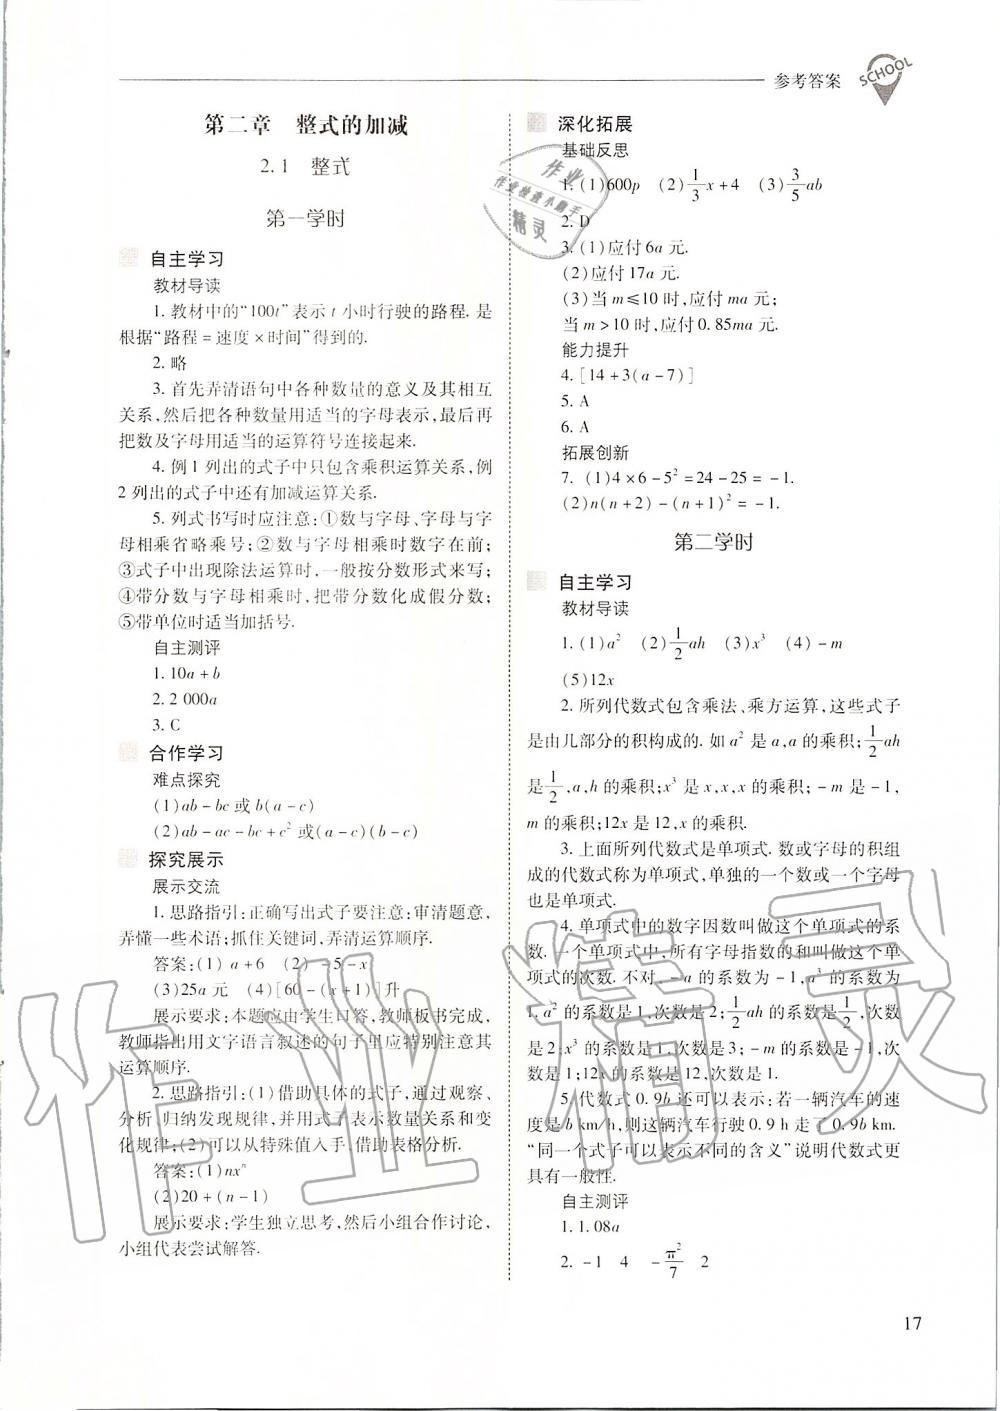 参考答案
SCHOOL
第二章　整式的加减
2.1　整式
第一学时
自主学习
教材导读
1. 教材中的“100t”表示 t 小时行驶的路程. 是
根据“路程 = 速度 × 时间”得到的.
2. 略
3. 首先弄清语句中各种数量的意义及其相互
关系,然后把各种数量用适当的字母表示,最后再
把数及字母用适当的运算符号连接起来.
4. 例 1 列出的式子中只包含乘积运算关系,例
2 列出的式子中还有加减运算关系.
5. 列式书写时应注意:①数与字母、字母与字
母相乘省略乘号;②数与字母相乘时数字在前;
③式子中出现除法运算时,一般按分数形式来写;
④带分数与字母相乘时,把带分数化成假分数;
⑤带单位时适当加括号.
自主测评
1. 10a + b
2. 2 000a
3. C
合作学习
难点探究
(1)ab - bc 或 b(a - c)
(2)ab - ac - bc + c² 或(a - c)(b - c)
探究展示
展示交流
1. 思路指引:正确写出式子要注意:审清题意,
弄懂一些术语;抓住关键词,弄清运算顺序.
答案:(1) a + 6　(2) - 5 - x
(3)25a 元　(4)[60 - (x + 1)]升
展示要求:本题应由学生口答,教师板书完成,
教师指出用文字语言叙述的句子里应特别注意其
运算顺序.
2. 思路指引:(1)借助具体的式子,通过观察、
分析、归纳发现规律,并用式子表示数量关系和变
化规律;(2)可以从特殊值入手,借助表格分析.
答案:(1)nxⁿ
(2)20 + (n - 1)
展示要求:学生独立思考,然后小组合作讨论,
小组代表尝试解答.
深化拓展
基础反思
1. (1)600p　(2)1/3 x + 4　(3)3/5 ab
2. D
3. (1)应付 6a 元.
(2)应付 17a 元.
(3)当 m ≤ 10 时,应付 ma 元;
当 m > 10 时,应付 0. 85ma 元.
能力提升
4. [14 + 3(a - 7)]
5. A
6. A
拓展创新
7. (1)4 × 6 - 5² = 24 - 25 = - 1.
(2)n(n + 2) - (n + 1)² = - 1.
第二学时
自主学习
教材导读
1. (1)a²　(2)1/2 ah　(3)x³　(4) - m
(5)12x
2. 所列代数式包含乘法、乘方运算,这些式子
是由几部分的积构成的. 如 a² 是 a,a 的乘积;1/2 ah
是 1/2,a,h 的乘积;x³ 是 x,x,x 的乘积; - m 是 - 1,
m 的乘积;12x 是 12,x 的乘积.
3. 上面所列代数式是单项式. 数或字母的积组
成的代数式称为单项式,单独的一个数或一个字母
也是单项式.
4. 单项式中的数字因数叫做这个单项式的系
数. 一个单项式中,所有字母指数的和叫做这个单
项式的次数. 不对. - a 的系数为 - 1,a³ 的系数为
1. a² 的系数是 1,次数是 2;1/2 ah 的系数是 1/2,次数
是 2;x³ 的系数是 1,次数是 3; - m 的系数是 - 1,次
数是 1;12x 的系数是 12,次数是 1.
5. 代数式 0. 9b 还可以表示:若一辆汽车的速
度是 b km/h,则这辆汽车行驶 0. 9 h 走了 0. 9b km.
“同一个式子可以表示不同的含义”说明代数式更
具有一般性.
自主测评
1. 1. 08a
2. - 1　4　- π²/7　2
17
作业
作业检查小助手
精灵
作业精灵